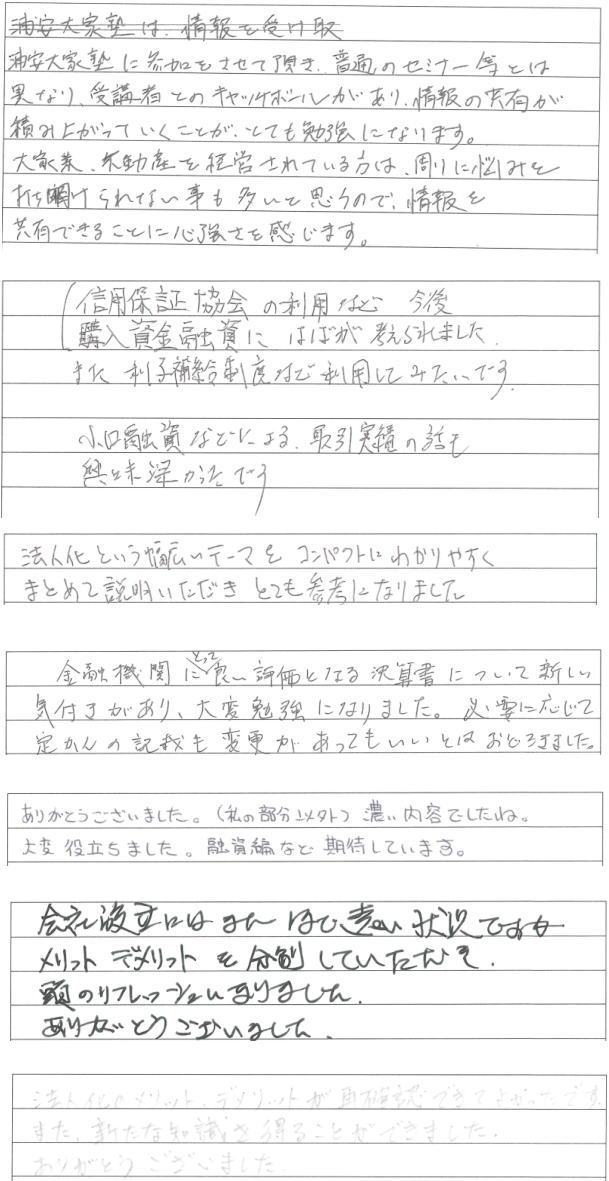 浦安大家塾は、情報を受け取
浦安大家塾に参加をさせて頂き、普通のセミナー等とは
異なり、受講者とのキャッチボールがあり、情報の共有が
積み上がっていくことが、とても勉強になります。
大家業、不動産を経営されている方は、周りに悩みを
打ち明けられない事も多いと思うので、情報を
共有できることに心強さを感じます。
信用保証協会の利用など 今後
購入資金融資に はばが考えられました.
また利子補給制度など利用してみたいです.
小口融資などによる、取引実績の話も
興味深かったです
法人化という幅広いテーマをコンパクトにわかりやすく
まとめて説明いただきとても参考になりました
金融機関にとって良い評価となる決算書について新しい
気付きがあり、大変勉強になりました。必要に応じて
定かんの記載も変更があってもいいとはおどろきました。
ありがとうございました。(私の部分以外)濃い内容でしたね。
大変役立ちました。融資編など期待しています。
会社設立にはまだほど遠い状況ですが
メリットデメリットを分別していただき.
頭のリフレッシュになりました.
ありがとうございました.
法人化のメリット、デメリットが再確認できてよかったです
また、新たな知識を得ることができました.
ありがとうございました.